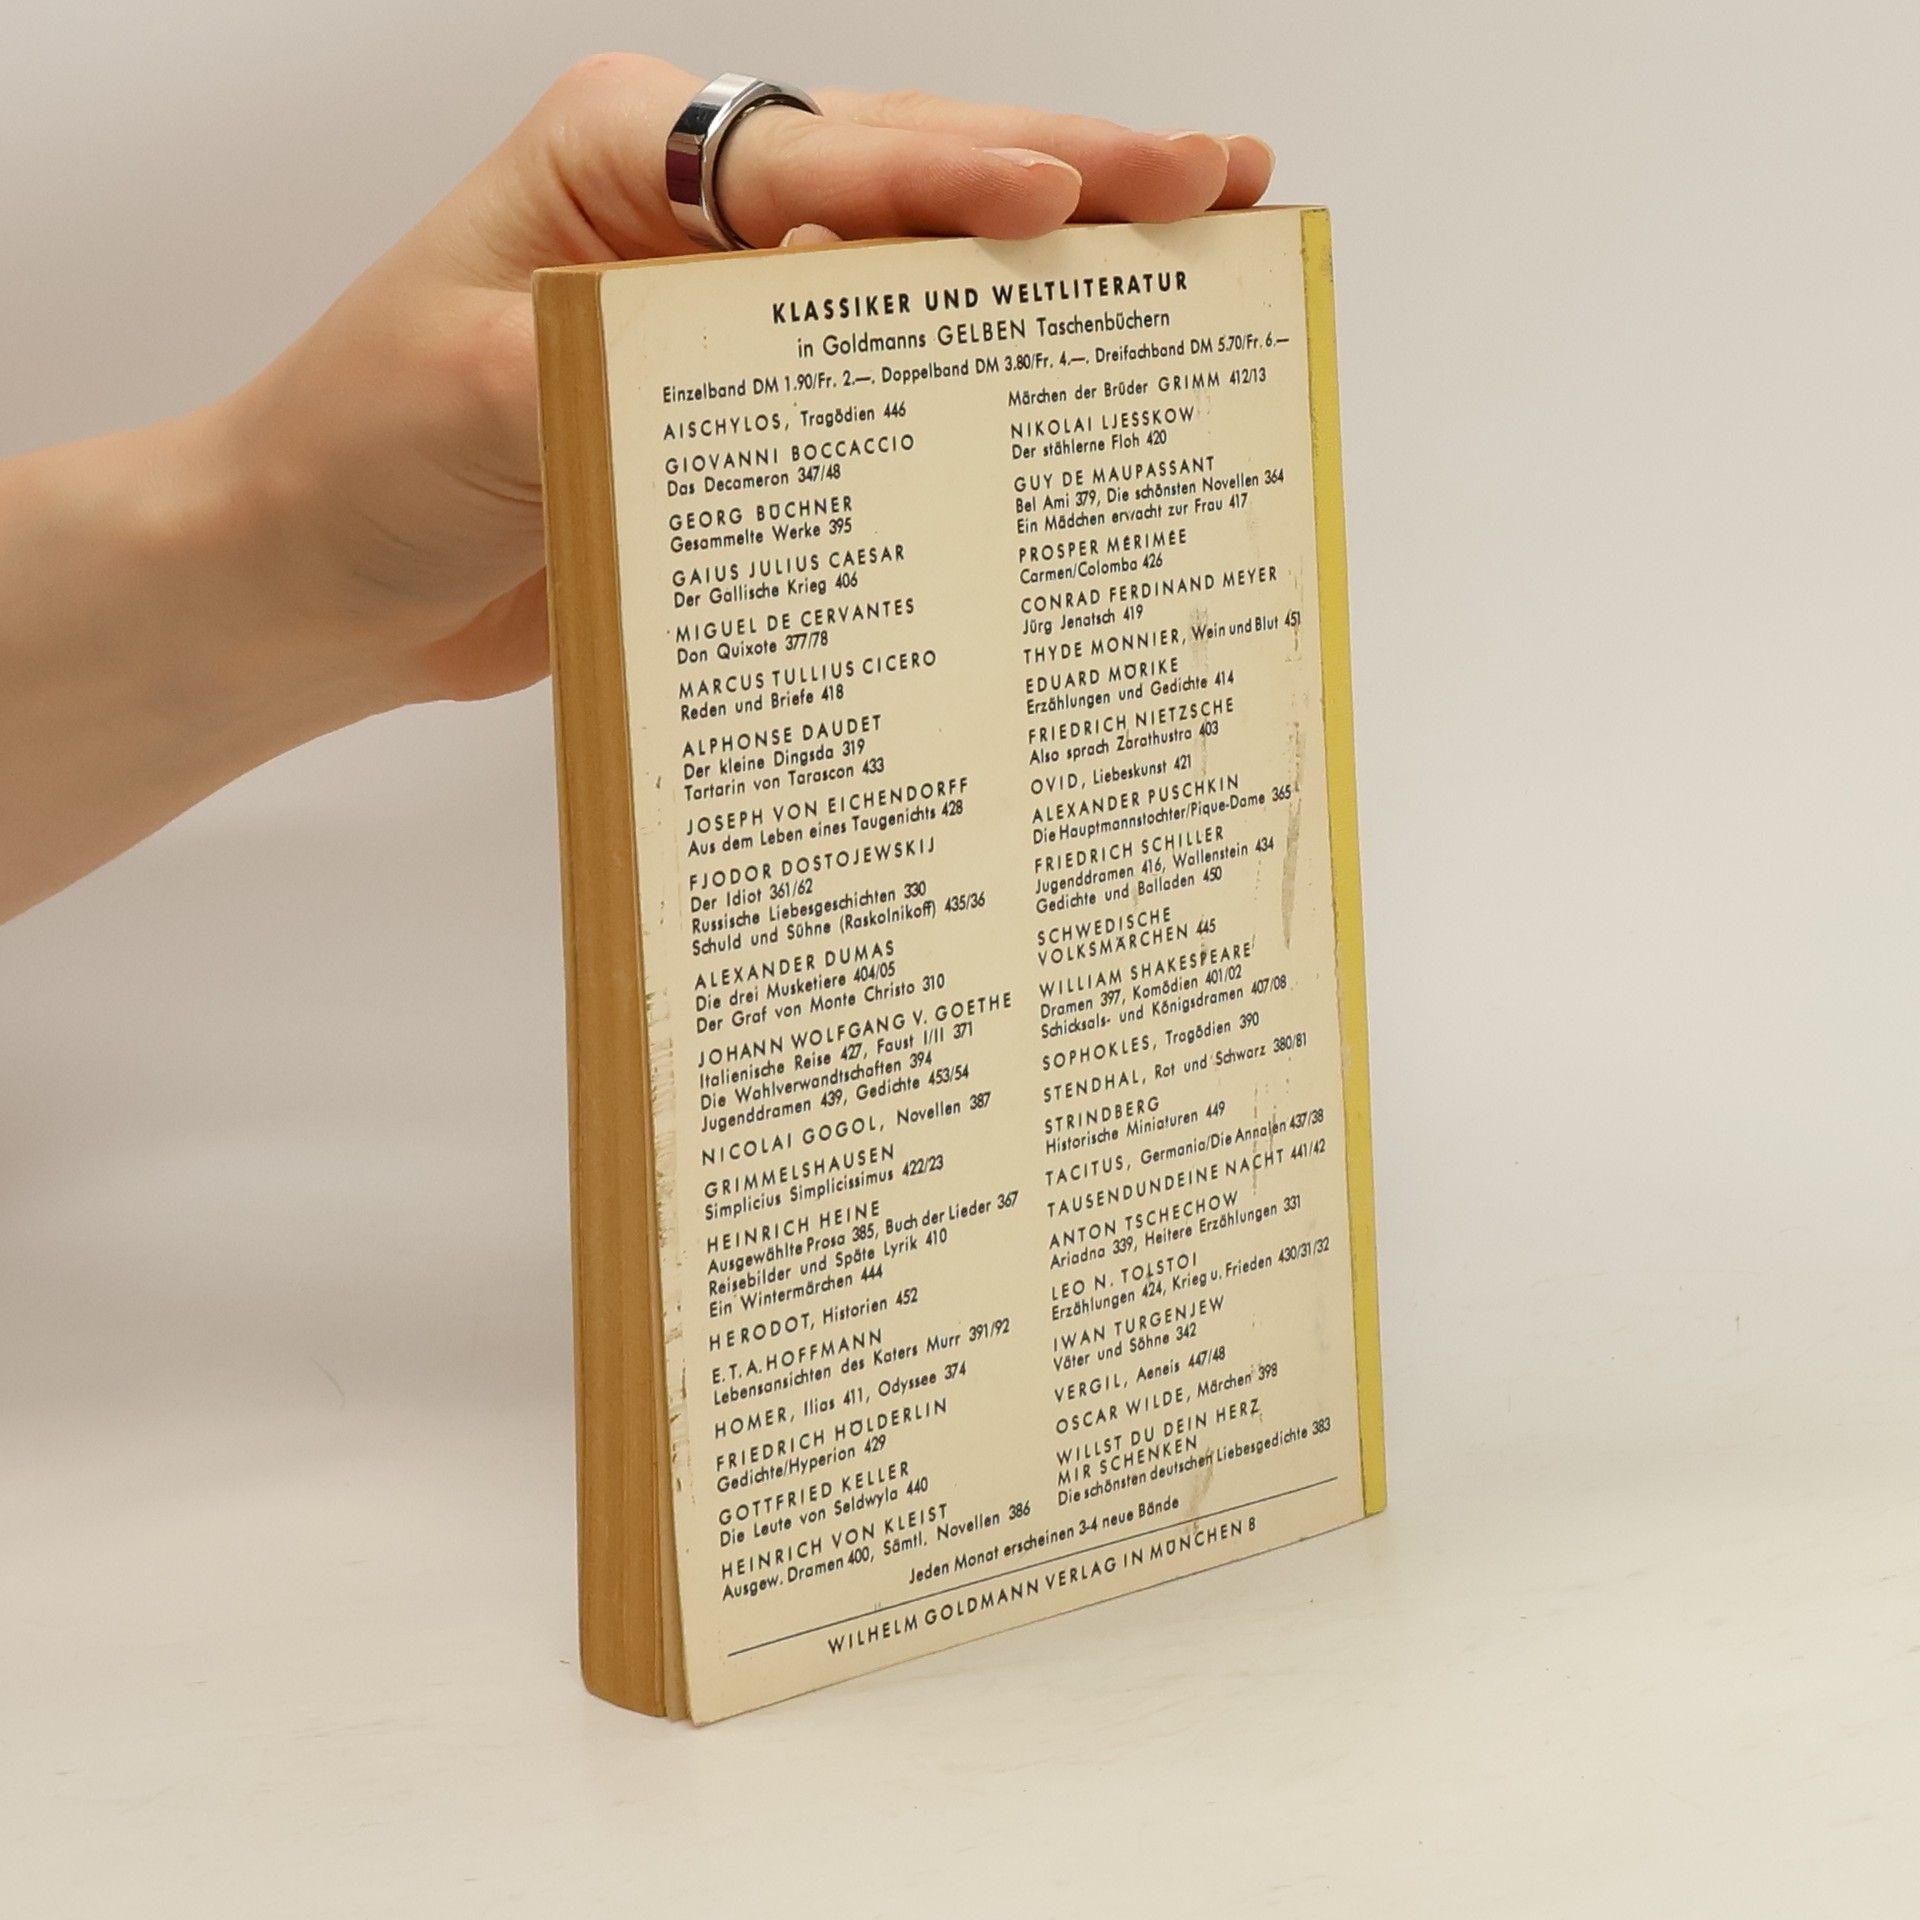 KLASSIKER UND WELTLITERATUR
in Goldmanns GELBEN Taschenbüchern
Einzelband DM 1.90/Fr. 2.—, Doppelband DM 3.80/Fr. 4.—, Dreifachband DM 5.70/Fr. 6.—
AISCHYLOS, Tragödien 446
GIOVANNI BOCCACCIO
Das Decameron 347/48
GEORG BÜCHNER
Gesammelte Werke 395
GAIUS JULIUS CAESAR
Der Gallische Krieg 406
MIGUEL DE CERVANTES
Don Quixote 377/78
MARCUS TULLIUS CICERO
Reden und Briefe 418
ALPHONSE DAUDET
Der kleine Dingsda 319
Tartarin von Tarascon 433
JOSEPH VON EICHENDORFF
Aus dem Leben eines Taugenichts 428
FJODOR DOSTOJEWSKIJ
Der Idiot 361/62
Russische Liebesgeschichten 330
Schuld und Sühne (Raskolnikoff) 435/36
ALEXANDER DUMAS
Die drei Musketiere 404/05
Der Graf von Monte Christo 310
JOHANN WOLFGANG V. GOETHE
Italienische Reise 427, Faust I/II 371
Die Wahlverwandtschaften 394
Jugenddramen 439, Gedichte 453/54
NICOLAI GOGOL, Novellen 387
GRIMMELSHAUSEN
Simplicius Simplicissimus 422/23
HEINRICH HEINE
Ausgewählte Prosa 385, Buch der Lieder 367
Reisebilder und Späte Lyrik 410
Ein Wintermärchen 444
HERODOT, Historien 452
E.T.A. HOFFMANN
Lebensansichten des Katers Murr 391/92
HOMER, Ilias 411, Odyssee 374
FRIEDRICH HÖLDERLIN
Gedichte/Hyperion 429
GOTTFRIED KELLER
Die Leute von Seldwyla 440
HEINRICH VON KLEIST
Ausgew. Dramen 400, Sämtl. Novellen 386
Märchen der Brüder GRIMM 412/13
NIKOLAI LJESSKOW
Der stählerne Floh 420
GUY DE MAUPASSANT
Bel Ami 379, Die schönsten Novellen 364
Ein Mädchen erwacht zur Frau 417
PROSPER MÉRIMÉE
Carmen/Colomba 426
CONRAD FERDINAND MEYER
Jürg Jenatsch 419
THYDE MONNIER, Wein und Blut 451
EDUARD MÖRIKE
Erzählungen und Gedichte 414
FRIEDRICH NIETZSCHE
Also sprach Zarathustra 403
OVID, Liebeskunst 421
ALEXANDER PUSCHKIN
Die Hauptmannstochter/Pique-Dame 365
FRIEDRICH SCHILLER
Jugenddramen 416, Wallenstein 434
Gedichte und Balladen 450
SCHWEDISCHE
VOLKSMÄRCHEN 445
WILLIAM SHAKESPEARE
Dramen 397, Komödien 401/02
Schicksals- und Königsdramen 407/08
SOPHOKLES, Tragödien 390
STENDHAL, Rot und Schwarz 380/81
STRINDBERG
Historische Miniaturen 449
TACITUS, Germania/Die Annalen 437/38
TAUSENDUNDEINE NACHT 441/42
ANTON TSCHECHOW
Ariadna 339, Heitere Erzählungen 331
LEO N. TOLSTOI
Erzählungen 424, Krieg u. Frieden 430/31/32
IWAN TURGENJEW
Väter und Söhne 342
VERGIL, Aeneis 447/48
OSCAR WILDE, Märchen 398
WILLST DU DEIN HERZ
MIR SCHENKEN
Die schönsten deutschen Liebesgedichte 383
Jeden Monat erscheinen 3-4 neue Bände
WILHELM GOLDMANN VERLAG IN MÜNCHEN 8